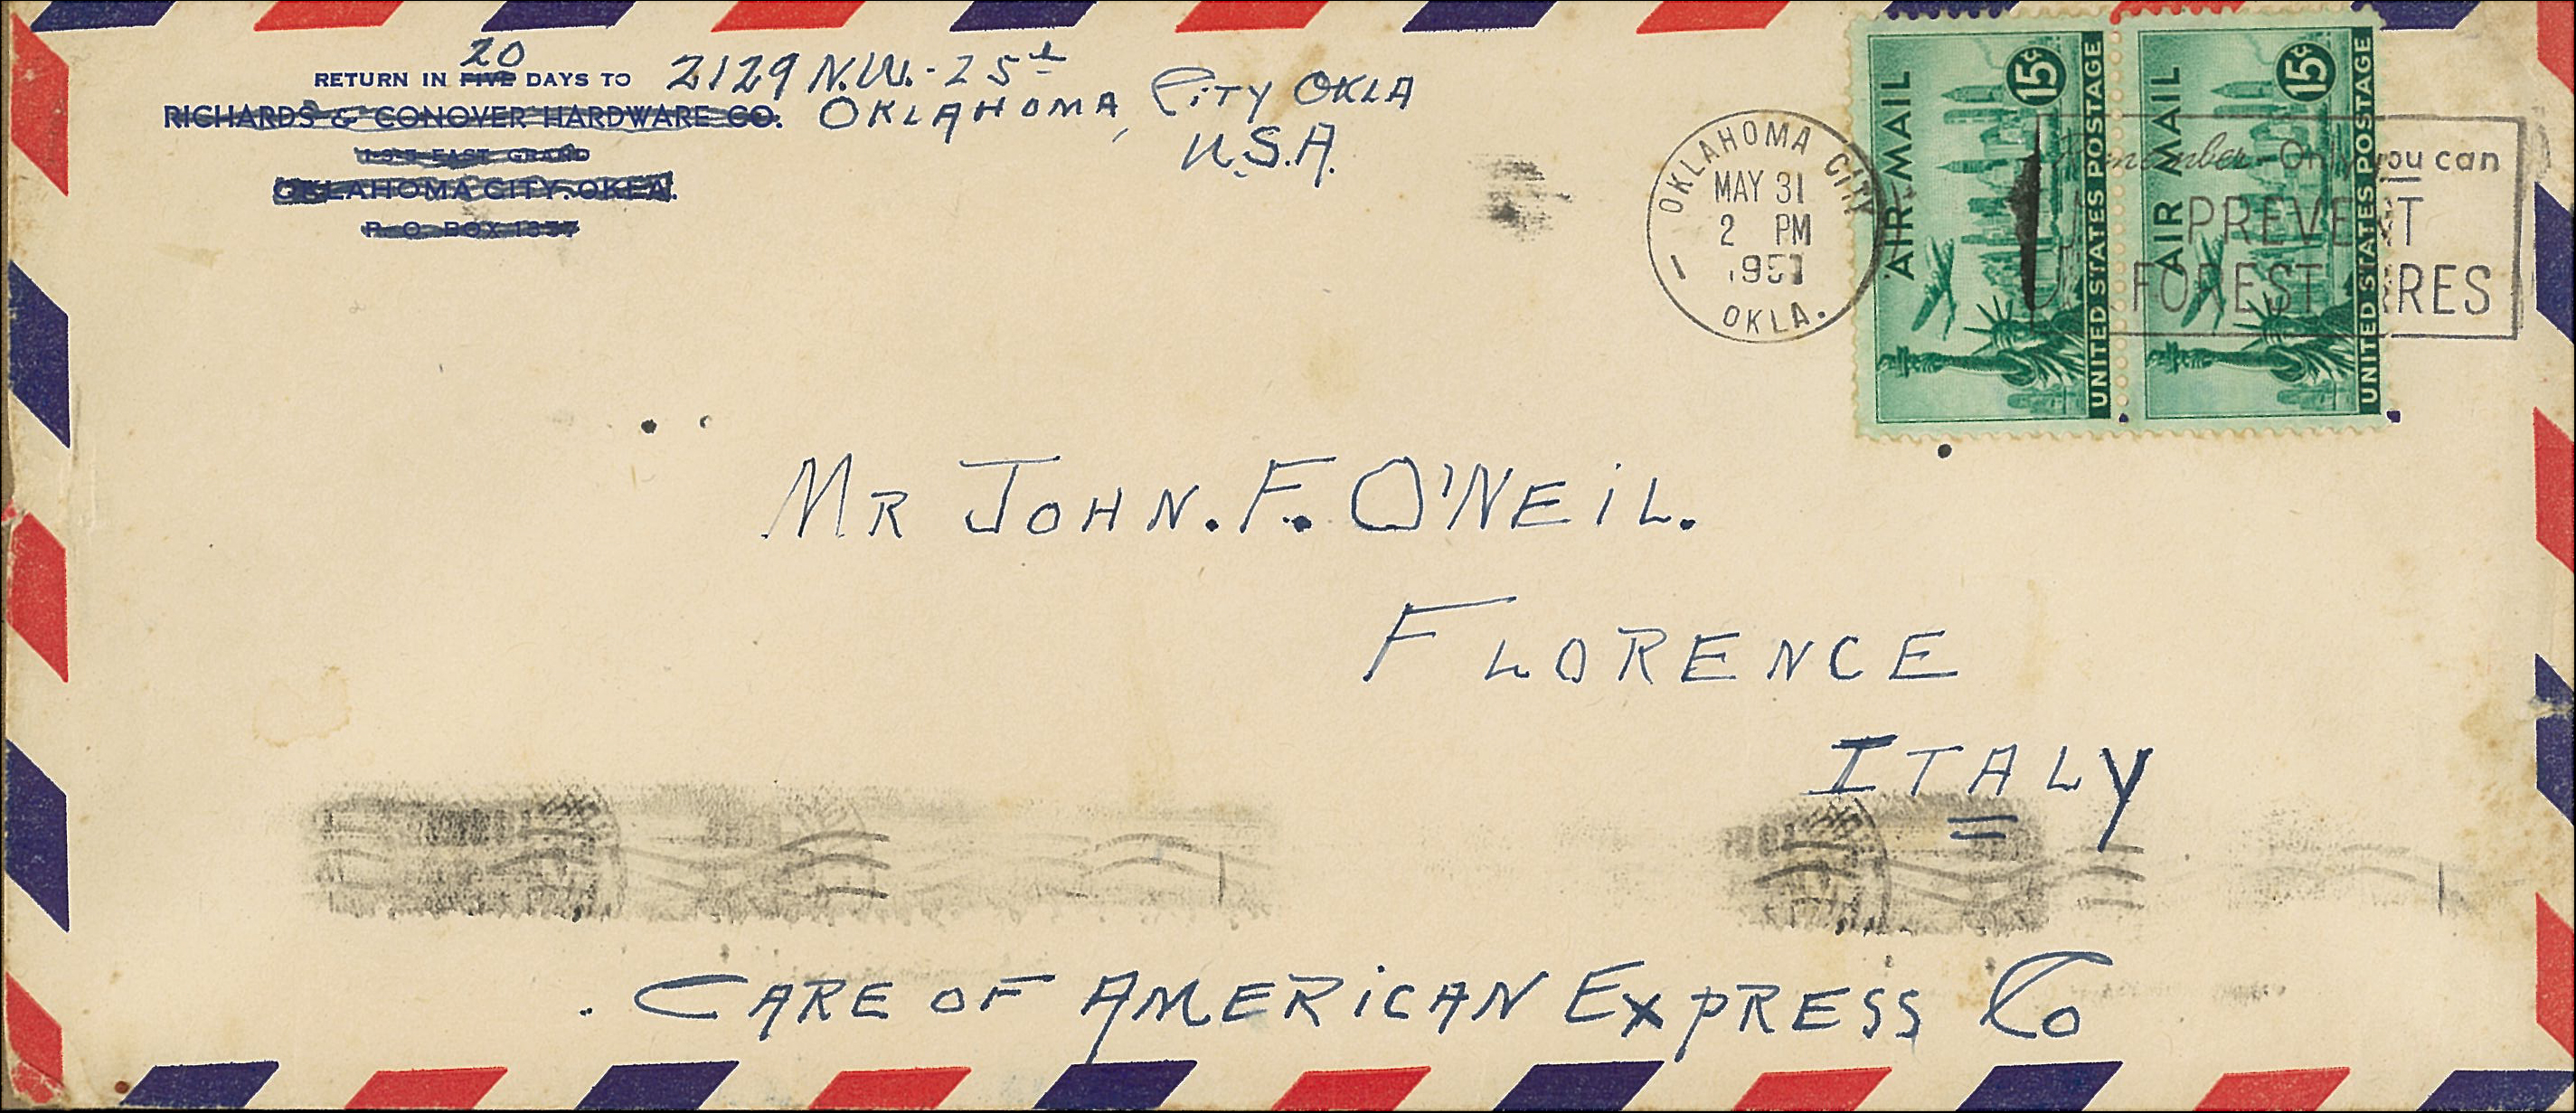 20
RETURN IN FIVE DAYS TO
RICHARDS & CONOVER HARDWARE CO.
EAST GRAND
OKLAHOMA CITY, OKLA.
P. O. BOX
2129 N.W.-25th
OKLAHOMA, CITY OKLA
U.S.A.
OKLAHOMA CITY
MAY 31
2 PM
1951
OKLA.
AIR MAIL
15¢
UNITED STATES POSTAGE
AIR MAIL
15¢
UNITED STATES POSTAGE
Remember-Only you can
PREVENT
FOREST FIRES
MR JOHN. F. O'NEIL.
FLORENCE
ITALY
. CARE OF AMERICAN EXPRESS Co